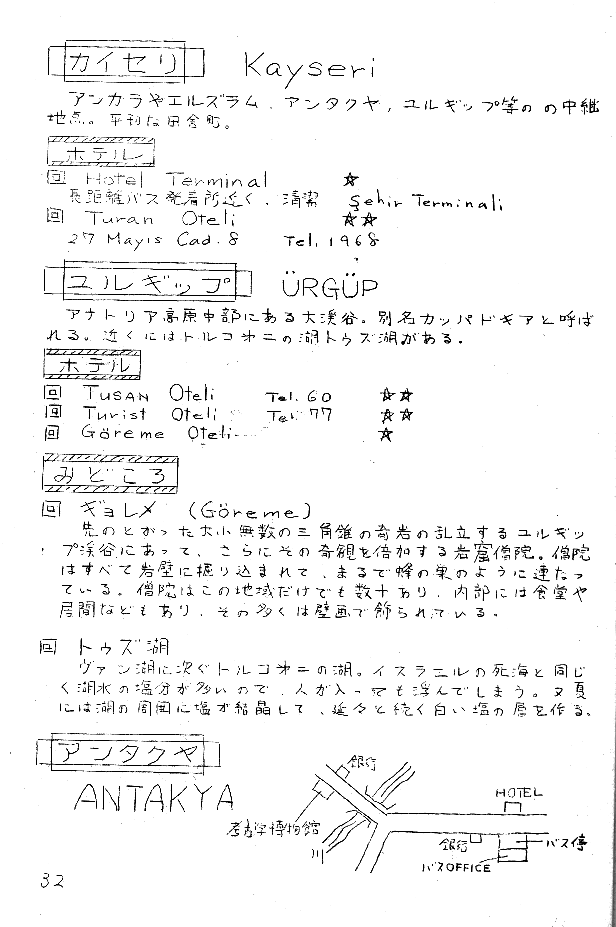 カイセリ Kayseri
アンカラやエルズラム、アンタクヤ,ユルギップ等のの中継
地点。平凡な田舎町。
ホテル
回 Hotel Terminal ☆
長距離バス発着所近く、清潔 Şehir Terminali
回 Turan Oteli ☆☆
27 Mayis Cad. 8 Tel. 1968
ユルギップ ÜRGÜP
アナトリア高原中部にある大渓谷。別名カッパドギアと呼ば
れる。近くにはトルコオ二の湖トゥズ湖がある.
ホテル
回 TUSAN Oteli Tel. 60 ☆☆
回 Turist Oteli Tel. 77 ☆☆
回 Göreme Oteli ☆
みどころ
回 ギョレメ (Göreme)
先のとがった大小無数の三角錐の奇岩の乱立するユルギッ
プ渓谷にあって、さらにその奇観を倍加する岩窟僧院。僧院
はすべて岩壁に掘り込まれて、まるで蜂の巣のように連なっ
ている。僧院はこの地域だけでも数十あり、内部には食堂や
居間などもあり、その多くは壁画で飾られている.
回 トゥズ湖
ヴァン湖に次ぐトルコオ二の湖。イスラエルの死海と同じ
く湖水の塩分が多いので、人が入っても浮んでしまう。又夏
には湖の周囲に塩が結晶して、延々と続く白い塩の層を作る。
アンタクヤ
ANTAKYA
銀行
考古学博物館
川
HOTEL
銀行
バス停
バスOFFICE
32